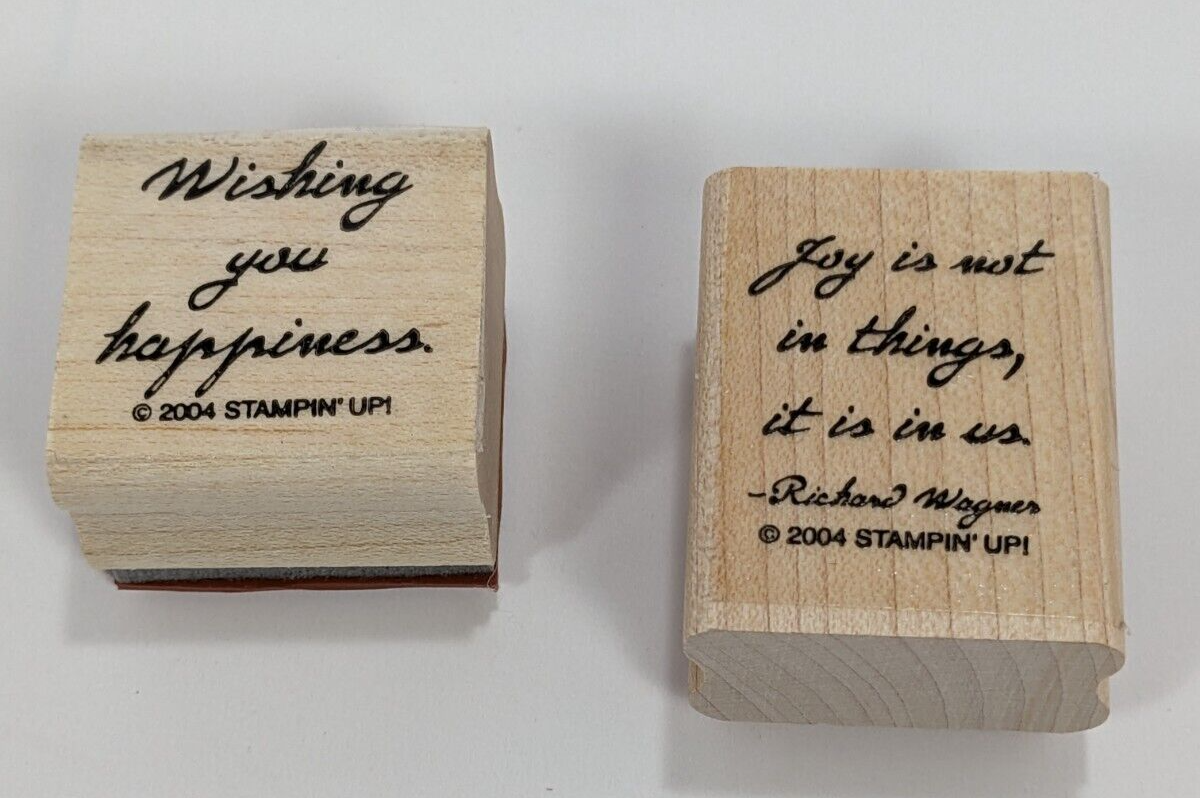 Wishing
you
happiness.
© 2004 STAMPIN' UP!
Joy is not
in things,
it is in us.
-Richard Wagner
© 2004 STAMPIN' UP!